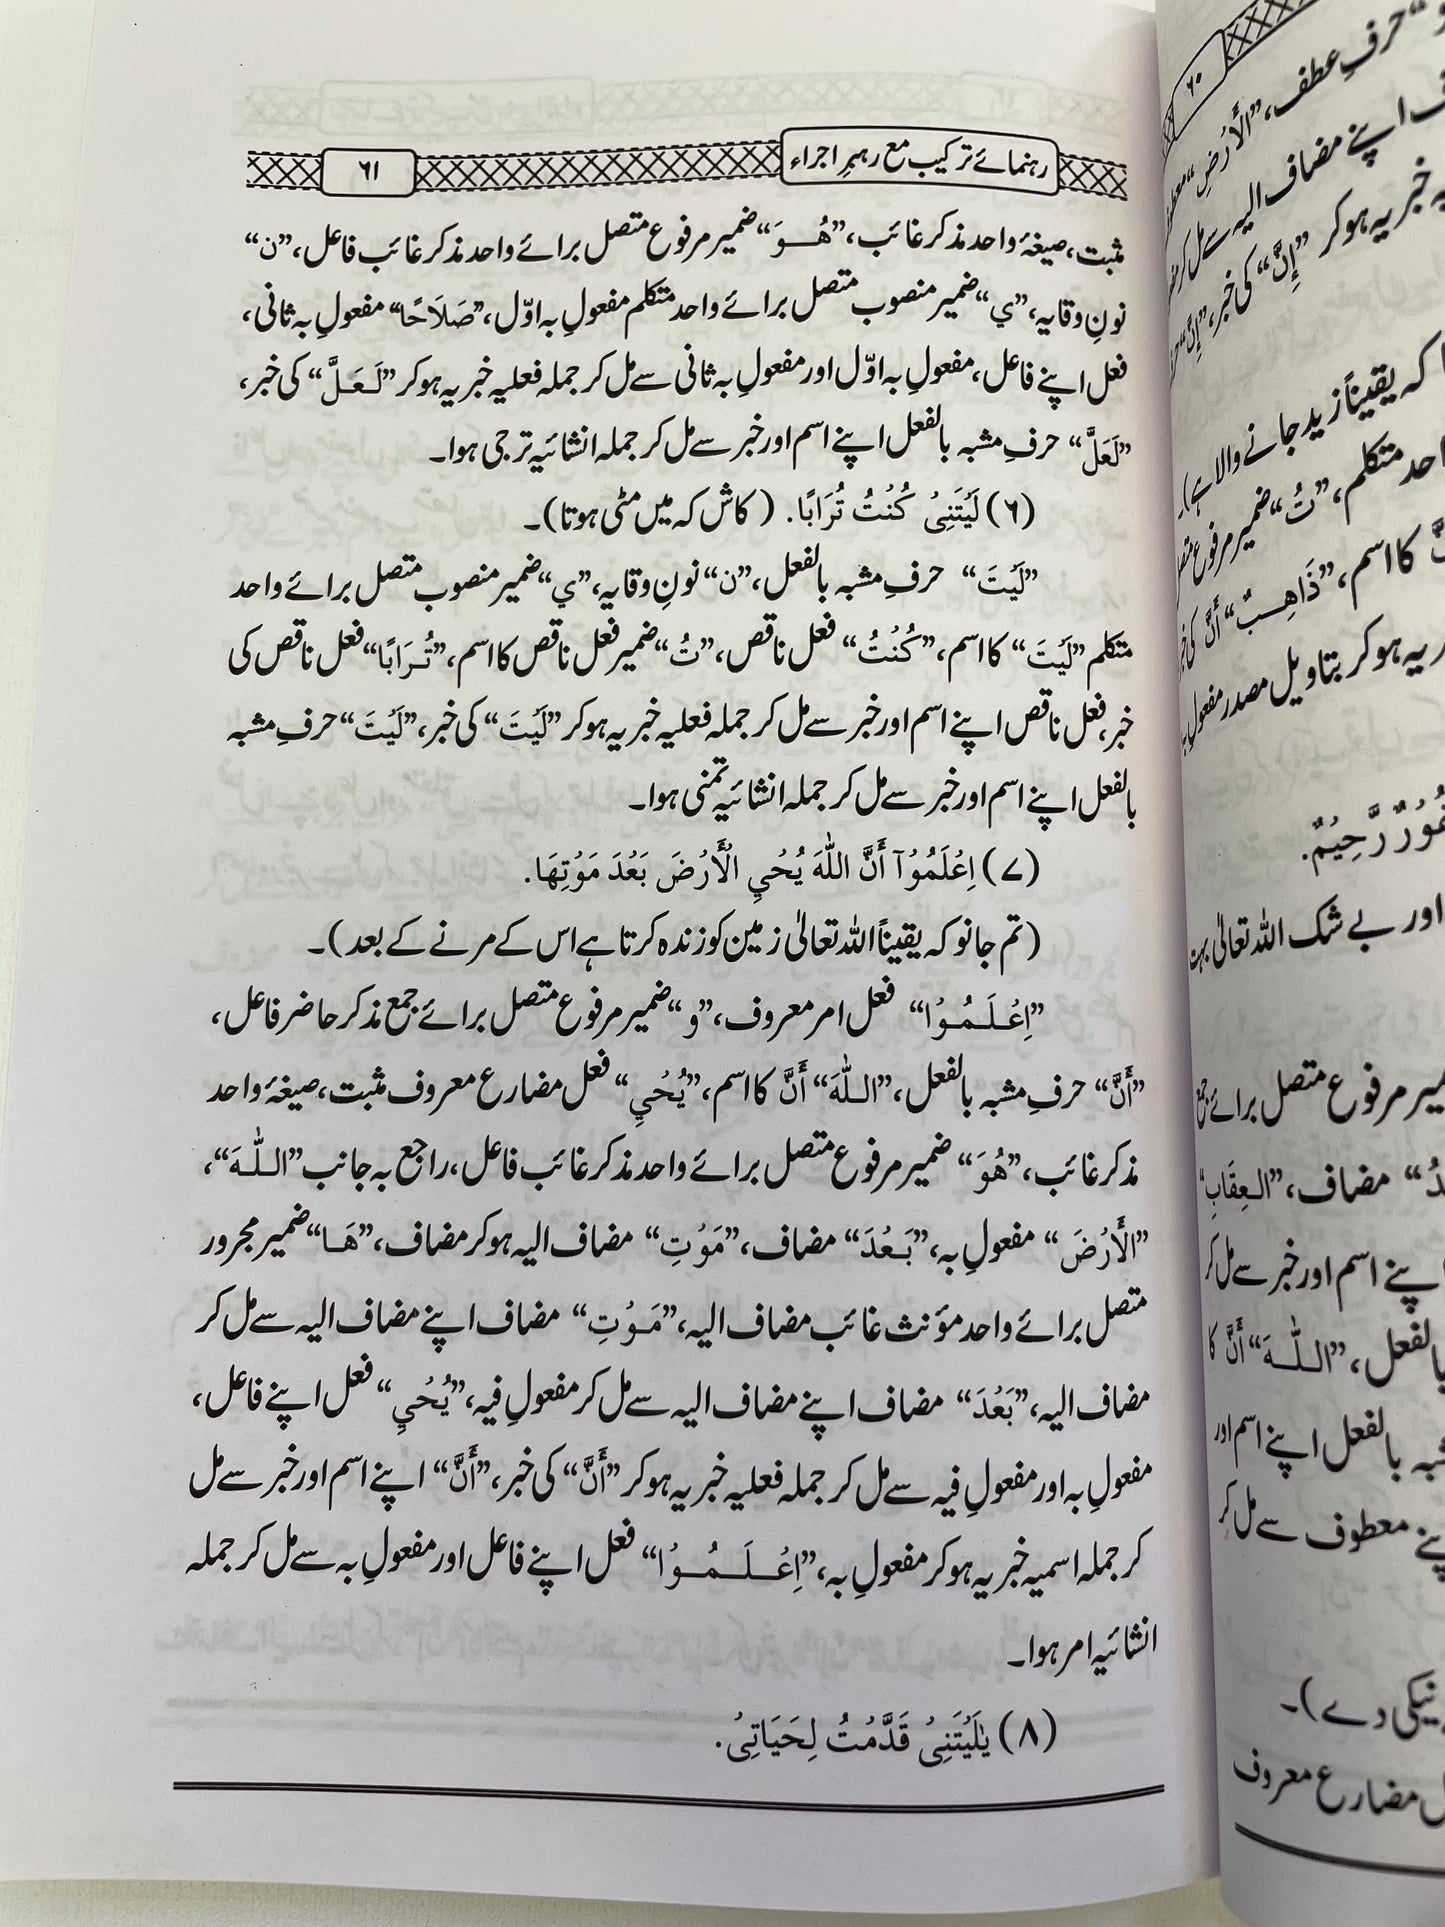 رہنمائے ترکیب مع رہبرِ اجراء
۶۱
مثبت، صیغۂ واحد مذکر غائب، ”هُوَ“ ضمیر مرفوع متصل برائے واحد مذکر غائب فاعل، ”ن“
نونِ وقایہ، ”ي“ ضمیر منصوب متصل برائے واحد متکلم مفعولِ بہ اوّل، ”صَلَاحًا“ مفعولِ بہ ثانی،
فعل اپنے فاعل، مفعولِ بہ اوّل اور مفعولِ بہ ثانی سے مل کر جملہ فعلیہ خبریہ ہوکر ”لَعَلَّ“ کی خبر،
”لَعَلَّ“ حرفِ مشبہ بالفعل اپنے اسم اور خبر سے مل کر جملہ انشائیہ ترجی ہوا۔
(۶) لَيْتَنِىْ كُنْتُ تُرَابًا. (کاش کہ میں مٹی ہوتا)۔
”لَيْتَ“ حرفِ مشبہ بالفعل، ”ن“ نونِ وقایہ، ”ي“ ضمیر منصوب متصل برائے واحد
متکلم ”لَيْتَ“ کا اسم، ”كُنْتُ“ فعل ناقص، ”تُ“ ضمیر فعل ناقص کا اسم، ”تُرَابًا“ فعل ناقص کی
خبر، فعل ناقص اپنے اسم اور خبر سے مل کر جملہ فعلیہ خبریہ ہوکر ”لَيْتَ“ کی خبر، ”لَيْتَ“ حرفِ مشبہ
بالفعل اپنے اسم اور خبر سے مل کر جملہ انشائیہ تمنی ہوا۔
(۷) اِعْلَمُوْآ أَنَّ اللّٰهَ يُحْيِ الْأَرْضَ بَعْدَ مَوْتِهَا.
(تم جانو کہ یقیناً اللہ تعالیٰ زمین کو زندہ کرتا ہے اس کے مرنے کے بعد)۔
”اِعْلَمُوْا“ فعل امر معروف، ”و“ ضمیر مرفوع متصل برائے جمع مذکر حاضر فاعل،
”أَنَّ“ حرفِ مشبہ بالفعل، ”اللّٰهَ“ أَنَّ کا اسم، ”يُحْيِ“ فعل مضارع معروف مثبت، صیغۂ واحد
مذکر غائب، ”هُوَ“ ضمیر مرفوع متصل برائے واحد مذکر غائب فاعل، راجع بہ جانب ”اللّٰهَ“،
”الْأَرْضَ“ مفعولِ بہ، ”بَعْدَ“ مضاف، ”مَوْتِ“ مضاف الیہ ہوکر مضاف، ”هَا“ ضمیر مجرور
متصل برائے واحد مؤنث غائب مضاف الیہ، ”مَوْتِ“ مضاف اپنے مضاف الیہ سے مل کر
مضاف الیہ، ”بَعْدَ“ مضاف اپنے مضاف الیہ سے مل کر مفعولِ فیہ، ”يُحْيِ“ فعل اپنے فاعل،
مفعولِ بہ اور مفعولِ فیہ سے مل کر جملہ فعلیہ خبریہ ہوکر ”أَنَّ“ کی خبر، ”أَنَّ“ اپنے اسم اور خبر سے مل
کر جملہ اسمیہ خبریہ ہوکر مفعولِ بہ، ”اِعْلَمُوْا“ فعل اپنے فاعل اور مفعولِ بہ سے مل کر جملہ
انشائیہ امر ہوا۔
(۸) يٰلَيْتَنِىْ قَدَّمْتُ لِحَيَاتِىْ.
۶۰
حرفِ عطف، ”الْأَرْضِ“
اپنے مضاف الیہ سے مل کر
خبریہ ہوکر ”إِنَّ“ کی خبر، ”إِنَّ“
کہ یقیناً زید جانے والا ہے)۔
واحد متکلم، ”تُ“ ضمیر مرفوع متصل
کا اسم، ”ذَاهِبٌ“ أَنَّ کی خبر
ہوکر بتاویل مصدر مفعولِ بہ
رَّحِيْمٌ.
اور بے شک اللہ تعالیٰ بہت
ضمیر مرفوع متصل برائے جمع
مضاف، ”الْعِقَابِ“
اپنے اسم اور خبر سے مل کر
بالفعل، ”اللّٰهَ“ أَنَّ کا
بالفعل اپنے اسم اور
اپنے معطوف سے مل کر
نیکی دے)۔
مضارع معروف